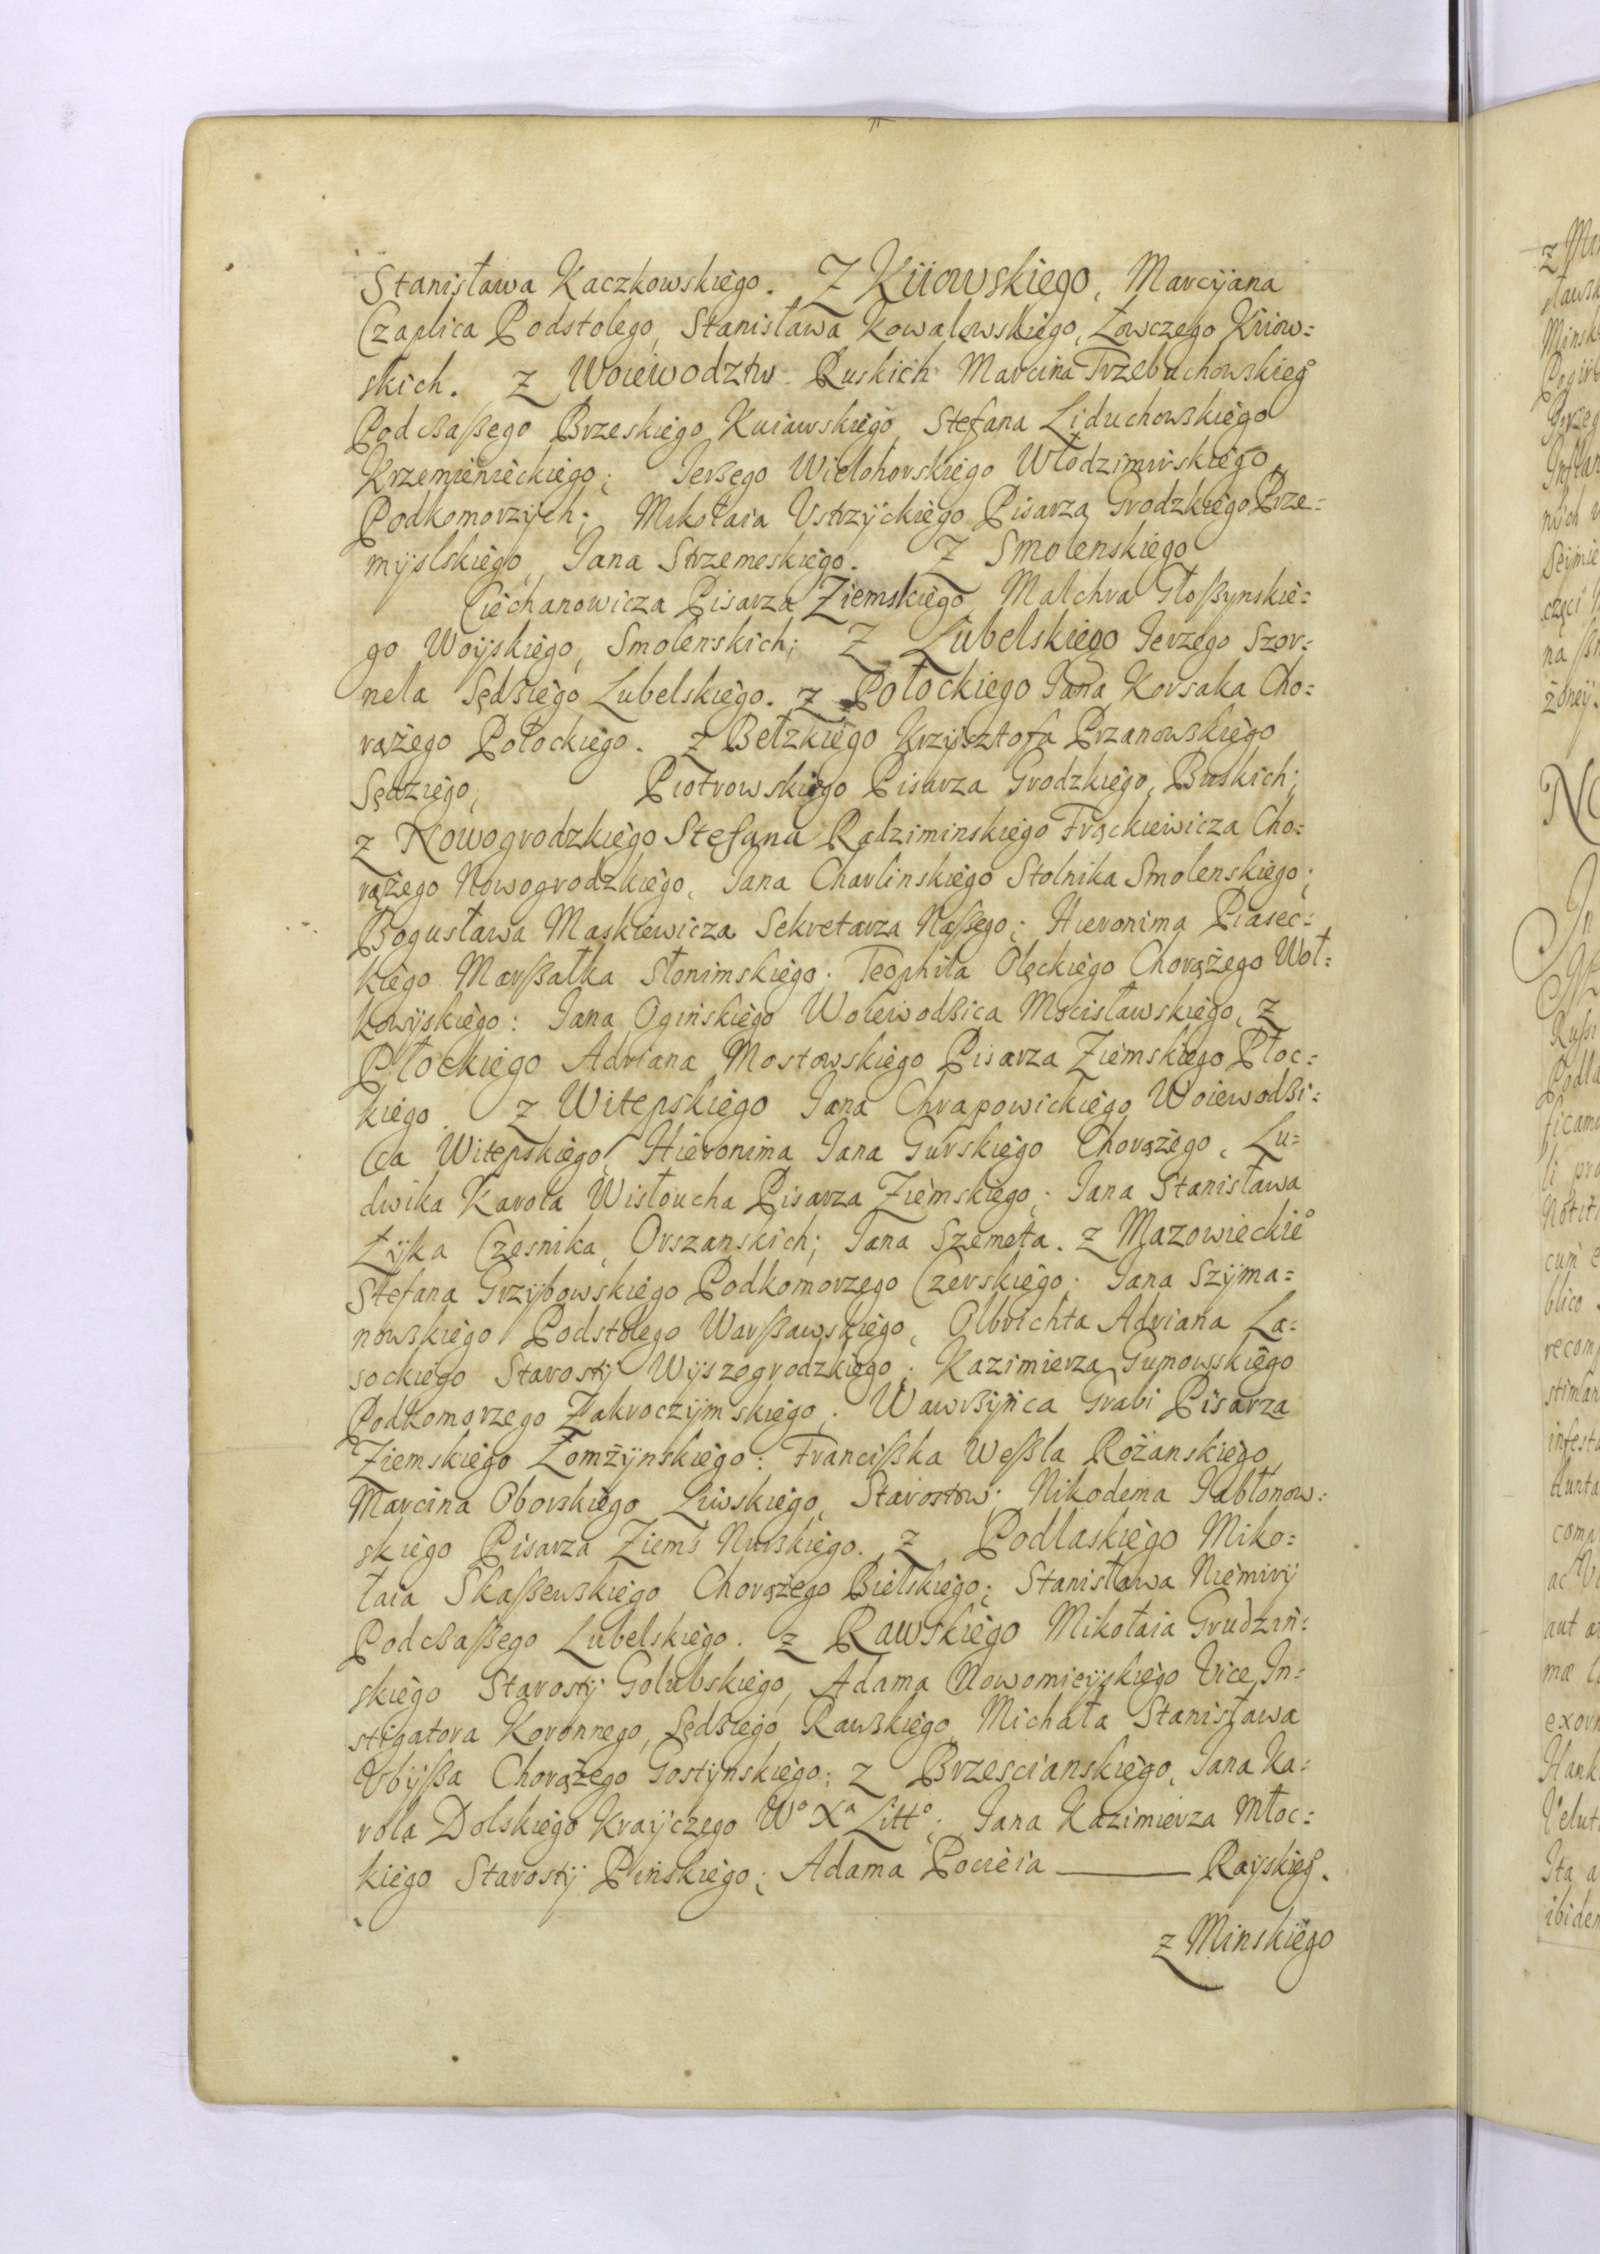 Stanisława Kaczkowskiego. Z Kijowskiego, Marcyjana
Czaplica Podstolego, Stanisława Kowalewskiego, Łowczego Kiiow=
skich. Z Woiewodztw Ruskich Marcina Trzebuchowskieg°
Podcßaßego Brzeskiego Kuiawskiego, Stefana Liduchowskiego
Krzemienieckiego; Jerzego Wielohorskiego Włodzimirskiego,
Podkomorzych; Mikołaia Ustrzyckiego Pisarza Grodzkiego Prze=
myslskiego, Jana Strzemeskiego. Z Smolenskiego
Ciechanowicza Pisarza Ziemskiego, Malchra Głoßynskie=
go Woyskiego, Smolenskich; Z Lubelskiego Jerzego Szor=
nela Sędziego Lubelskiego. z Połockiego Jana Korsaka Cho=
rążego Połockiego. z Bełzkiego Krzysztofa Przanowskiego
Sędziego, Piotrowskiego Pisarza Grodzkiego, Buskich;
z Nowogrodzkiego Stefana Radziminskiego Frąckiewicza Cho=
rążego Nowogrodzkiego, Jana Charlinskiego Stolnika Smolenskiego;
Bogusława Maskiewicza Sekretarza Naßego; Hieronima Piasec=
kiego Marßałka Słonimskiego. Teophila Olęckiego Chorążego Woł=
kowyskiego: Jana Ogińskiego Woiewodzica Mscisławskiego, z
Płockiego Adriana Mostowskiego Pisarza Ziemskiego Płoc=
kiego. z Witepskiego Jana Chrapowickiego Woiewodzi=
ca Witepskiego, Hieronima Jana Gurskiego Chorążego, Lu=
dwika Karola Wisłoucha Pisarza Ziemskiego; Jana Stanisława
Łyka Czesnika, Orszanskich; Jana Szemeta. z Mazowieckie°
Stefana Grzybowskiego Podkomorzego Czerskiego; Jana Szyma=
nowskiego Podstolego Warßawskiego, Olbrichta Adriana La=
sockiego Starosty Wyszegrodzkiego; Kazimierza Gumowskiego
Podkomorzego Zakroczymskiego; Wawrzyńca Grabi Pisarza
Ziemskiego Łomżynskiego: Francißka Weßla Rożanskiego,
Marcina Oborskiego Liwskiego, Starostow; Nikodema Jabłonow=
skiego Pisarza Ziems Nurskiego. z Podlaskiego Miko=
łaia Skaßewskiego Chorążego Bielskiego; Stanisława Niemiry
Podcßaßego Lubelskiego. z Rawskiego Mikołaia Grudziń=
skiego Starosty Golubskiego, Adama Nowomieyskiego Vice In=
stigatora Koronnego, Sędziego Rawskiego, Michała Stanisława
Ubyßa Chorążego Gostynskiego; z Brzescianskiego, Jana Ka=
rola Dolskiego Krayczego W° Xª Litt°; Jana Kazimierza Młoc=
kiego Starosty Pińskiego; Adama Pocieia ——— Rayskieg°.
z Minskiego